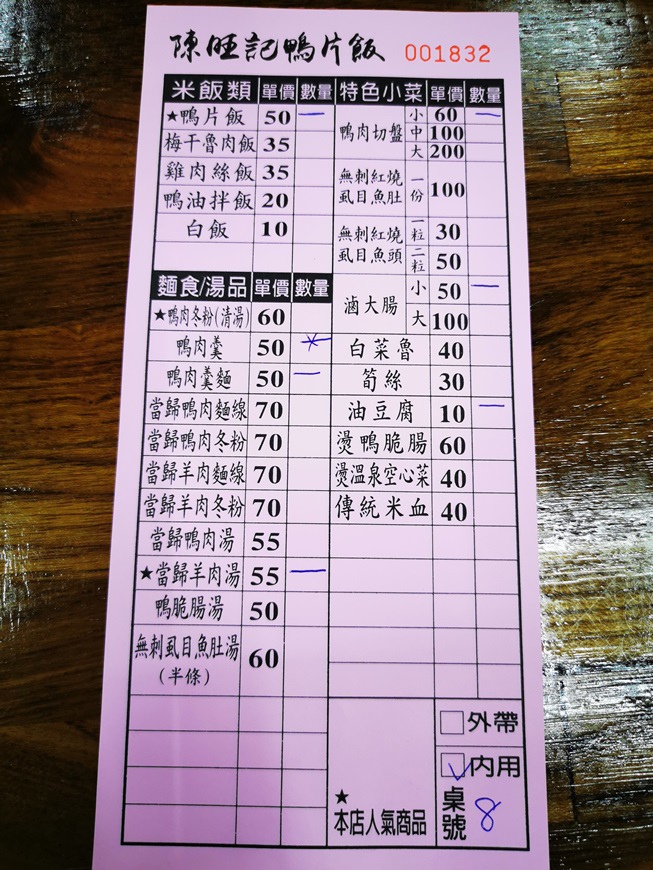 陳旺記鴨片飯 001832
米飯類 單價 數量
★鴨片飯 50 一
梅干魯肉飯 35
雞肉絲飯 35
鴨油拌飯 20
白飯 10
麵食/湯品 單價 數量
★鴨肉冬粉(清湯) 60
鴨肉羹 50
鴨肉羹麵 50 一
當歸鴨肉麵線 70
當歸鴨肉冬粉 70
當歸羊肉麵線 70
當歸羊肉冬粉 70
當歸鴨肉湯 55
★當歸羊肉湯 55 一
鴨脆腸湯 50
無刺虱目魚肚湯 60
(半條)
特色小菜 單價 數量
鴨肉切盤 小 60 一
中 100
大 200
無刺紅燒虱目魚肚 一份 100
無刺紅燒虱目魚頭 一粒 30
二粒 50
滷大腸 小 50 一
大 100
白菜魯 40
筍絲 30
油豆腐 10 一
燙鴨脆腸 60
燙溫泉空心菜 40
傳統米血 40
★
本店人氣商品
外帶
✓內用
桌號 8